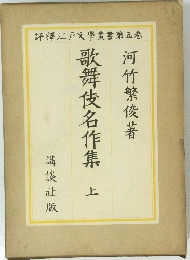 評釋江戸文學叢書第五巻
河竹繁俊著
歌舞伎名作集 上
講談社版